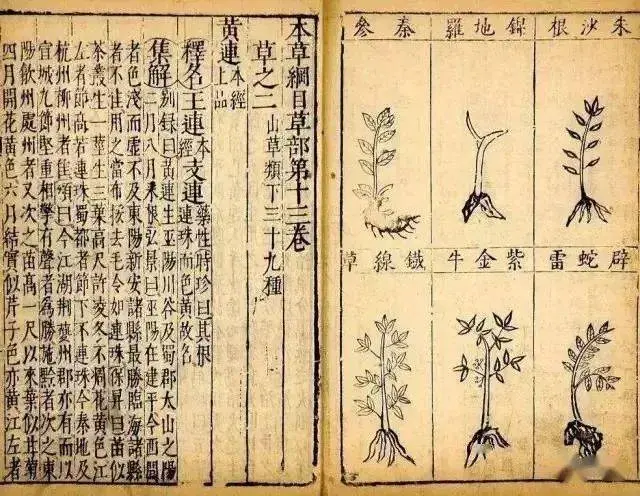 朱沙根
錦地羅
拳參
辟蛇雷
紫金牛
鐵線草
本草綱目草部第十三卷
草之二 山草類下三十九種
黃連 本經上品
釋名 王連本經 支連藥性 時珍曰其根
連珠而色黃故名
集解 別錄曰黃連生巫陽川谷及蜀郡太山之陽
二月八月采根弘景曰巫陽在建平今西間
者色淺而虛不及東陽新安諸縣最勝臨海諸縣
者不佳用之當布挼去毛令如連珠保昇曰苗似
茶叢生一莖生三葉高尺許凌冬不凋花黃色江
左者節高若連珠蜀都者節下不連珠今秦地及
杭州柳州者佳頌曰今江湖荊夔州郡亦有而以
宣城九節堅重相擊有聲者為勝施黔者次之東
陽歙州處州者又次之苗高一尺以來葉似甘菊
四月開花黃色六月結實似芹子色亦黃江左者